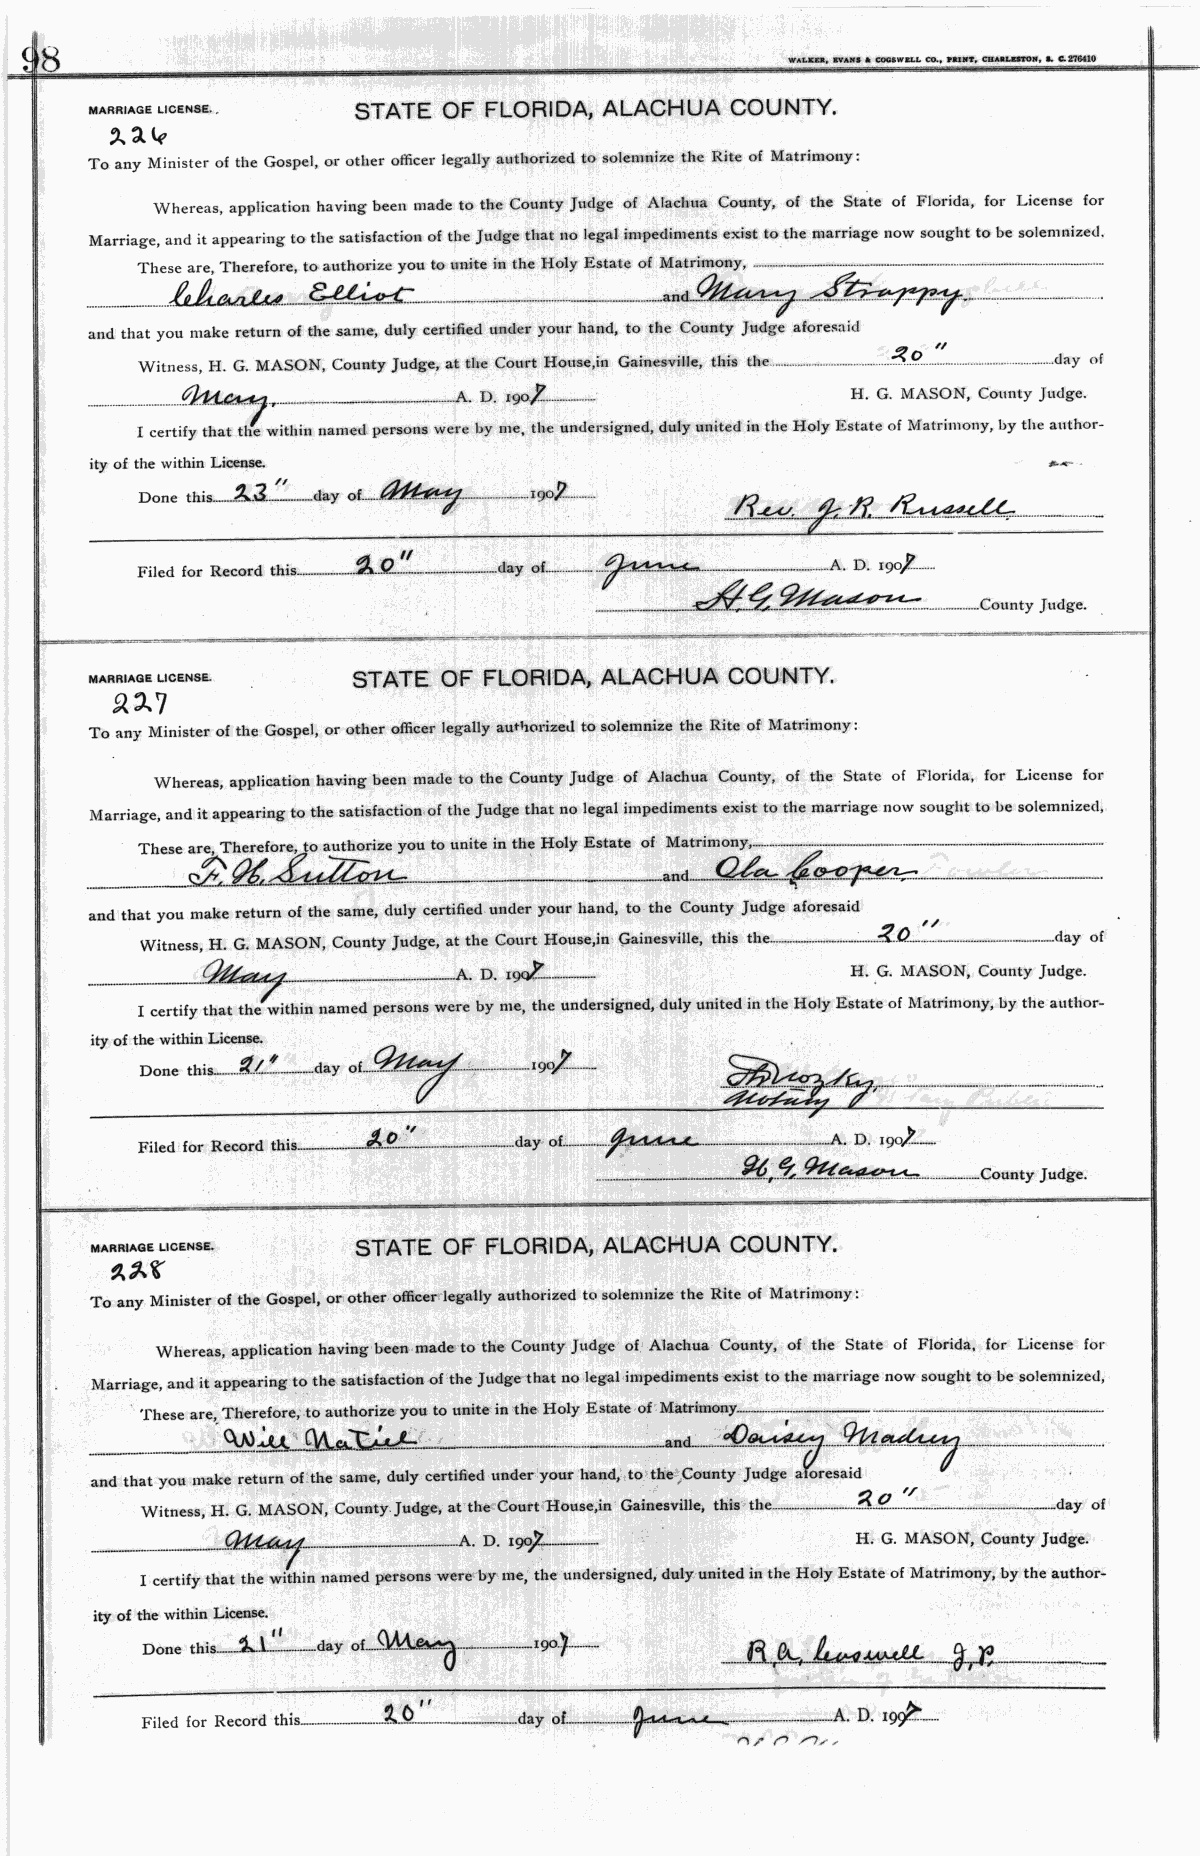 98
WALKER, EVANS & COGSWELL CO., PRINT, CHARLESTON, S. C. 276410
MARRIAGE LICENSE. STATE OF FLORIDA, ALACHUA COUNTY.
226
To any Minister of the Gospel, or other officer legally authorized to solemnize the Rite of Matrimony:
Whereas, application having been made to the County Judge of Alachua County, of the State of Florida, for License for
Marriage, and it appearing to the satisfaction of the Judge that no legal impediments exist to the marriage now sought to be solemnized.
These are, Therefore, to authorize you to unite in the Holy Estate of Matrimony,
Charles Elliot and Mary Strappy.
and that you make return of the same, duly certified under your hand, to the County Judge aforesaid
Witness, H. G. MASON, County Judge, at the Court House,in Gainesville, this the 20" day of
May, A. D. 1907 H. G. MASON, County Judge.
I certify that the within named persons were by me, the undersigned, duly united in the Holy Estate of Matrimony, by the author-
ity of the within License.
Done this 23" day of May 1907
Rev. J. R. Russell
Filed for Record this 20" day of June A. D. 1907
H. G. Mason County Judge.
MARRIAGE LICENSE. STATE OF FLORIDA, ALACHUA COUNTY.
227
To any Minister of the Gospel, or other officer legally authorized to solemnize the Rite of Matrimony:
Whereas, application having been made to the County Judge of Alachua County, of the State of Florida, for License for
Marriage, and it appearing to the satisfaction of the Judge that no legal impediments exist to the marriage now sought to be solemnized,
These are, Therefore, to authorize you to unite in the Holy Estate of Matrimony,
F. H. Sutton and Ola Cooper.
and that you make return of the same, duly certified under your hand, to the County Judge aforesaid
Witness, H. G. MASON, County Judge, at the Court House,in Gainesville, this the 20" day of
May A. D. 1907 H. G. MASON, County Judge.
I certify that the within named persons were by me, the undersigned, duly united in the Holy Estate of Matrimony, by the author-
ity of the within License.
Done this 21" day of May 1907
Notary
Filed for Record this 20" day of June A. D. 1907
H. G. Mason County Judge.
MARRIAGE LICENSE. STATE OF FLORIDA, ALACHUA COUNTY.
228
To any Minister of the Gospel, or other officer legally authorized to solemnize the Rite of Matrimony:
Whereas, application having been made to the County Judge of Alachua County, of the State of Florida, for License for
Marriage, and it appearing to the satisfaction of the Judge that no legal impediments exist to the marriage now sought to be solemnized,
These are, Therefore, to authorize you to unite in the Holy Estate of Matrimony
Will NaTiel and Daisey Madrey
and that you make return of the same, duly certified under your hand, to the County Judge aforesaid
Witness, H. G. MASON, County Judge, at the Court House,in Gainesville, this the 20" day of
May A. D. 1907 H. G. MASON, County Judge.
I certify that the within named persons were by me, the undersigned, duly united in the Holy Estate of Matrimony, by the author-
ity of the within License.
Done this 21" day of May 1907
R. A. Caswell J. P.
Filed for Record this 20" day of June A. D. 1907